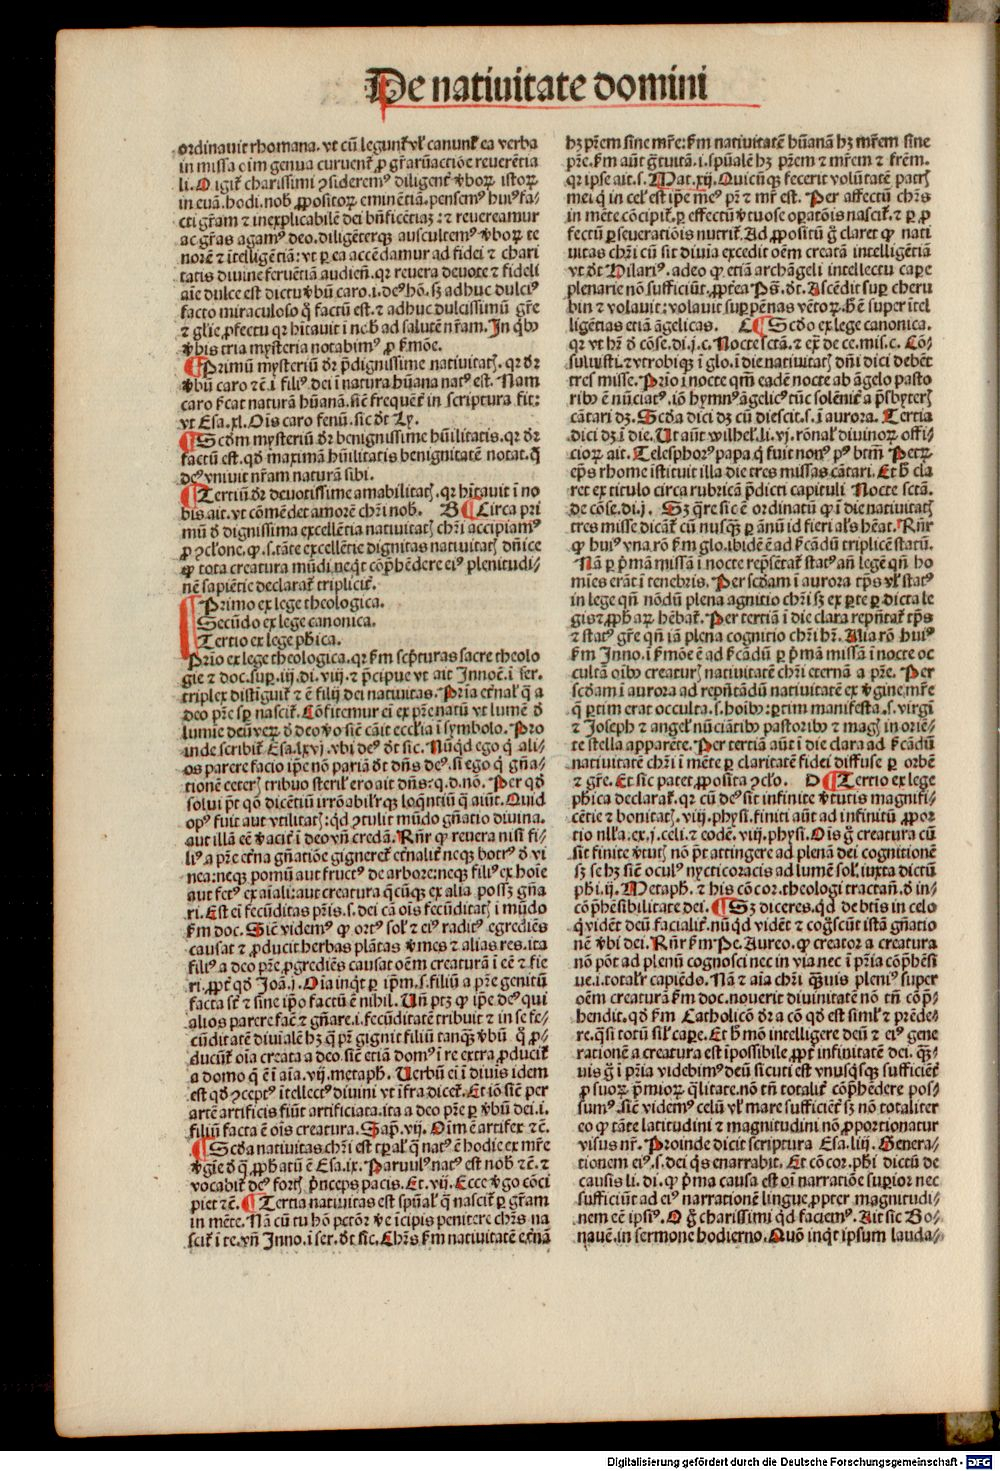 De natiuitate domini
ordinauit rhomana. vt cū legunt᷑ vl᷑ canunt᷑ ea verba
in missa oīm genua curuent᷑ ꝓ gr̄aruꝫ actiōe reuerētia
li. O igit᷑ charissimi ꝯsideremꝰ diligent᷑ v̓boꝝ istoꝝ
in euā. hodi. nob̓ ꝓpositoꝝ eminētiā. pensemꝰ huiꝰ fa-
cti gr̄am ⁊ inexplicabilē dei bn̄ficētiaꝫ: ⁊ reuereamur
ac gr̄as agamꝰ deo. diligēterqꝫ auscultemꝰ v̓boꝝ te
norē ⁊ ītelligētiā: vt ꝑ ea accēdamur ad fidei ⁊ chari
tatis diuine feruētiā audien̄. qꝛ reuera deuote ⁊ fideli
aīe dulce est dictu v̓bū caro. i. deꝰ hō. sꝫ adhuc dulciꝰ
facto miraculoso q̇ factū est. ⁊ adhuc dulcissimū gr̄e
⁊ gl̄ie ꝓfectu qꝛ hītauit ī nob̓ ad salutē nr̄am. In q̇bꝰ
v̓bis tria mysteria notabimꝰ ꝓ ẜmōe.
¶ Primū mysteriū dr̄ p̄dignissime natiuitatꝭ. qꝛ dr̄
v̓bū caro ⁊c̄. i. filiꝰ dei ī natura hūana natꝰ est. Nam
caro ẜcat naturā hūanā. sic̄ frequēt᷑ in scriptura fit:
vt Esa. xl. Ois caro fenū. sic dt̄ Ly.
¶ Scd̄m mysteriū dr̄ benignissime hūilitatis. qꝛ dr̄
factū est. qd̓ maximā hūilitatis benignitatē notat. q̇
deꝰ vniuit nr̄am naturā sibi.
¶ Tertiū dr̄ deuotissime amabilitatꝭ. qꝛ hītauit ī no
bis. ait. vt cōmēdet amorē chr̄i nob̓. B ¶ Circa pri
mū d̓ dignissima excellētia natiuitatꝭ chr̄i accipiamꝰ
ꝓ ꝯcl̓one. ꝙ. s. tāte excellētie dignitas natiuitatꝭ dn̄ice
ꝙ tota creatura mūdi neq̇t cōp̄hēdere eiꝰ plenitudi-
nē sapiētie declarat᷑ triplicit᷑.
¶ Primo ex lege theologica.
Secūdo ex lege canonica.
Tertio ex lege ph̄ica.
Prīo ex lege theologica. qꝛ ẜm scp̄turas sacre theolo
gie ⁊ doc. suꝑ. iij. di. viij. ⁊ p̄cipue vt ait Innoc̄. i ser.
triplex distīguit᷑ ⁊ ē filij dei natiuitas. Prīa et̓nal̓ q̄ a
deo pr̄e sꝑ nascit᷑. Cōfitemur ei ex pr̄e natū vt lumē d̓
lumīe deū veꝝ d̓ deo v̓o sic̄ cāit eccl̄ia ī symbolo. Pro
inde scribit᷑ Esa. lxvj. vbi deꝰ dt̄ sic. Nūq̇d ego q̇ ali-
os parere facio ip̄e nō pariā dt̄ dn̄s deꝰ. si ego q̇ gn̄a-
tionē ceterꝭ tribuo steril̓ ero ait dn̄s: q. d. nō. Per qd̓
solui p̄t qō dicētiū irrōabil̓rqꝫ loq̄ntiū q̇ aiūt. Quid
opꝰ fuit aut vtilitatꝭ: q̇d ꝯtulit mūdo gn̄atio diuina.
aut illā eē v̓acit᷑ ī deo vn̄ credā. Rn̄r ꝙ reuera nisi fi-
liꝰ a pr̄e et̓na gn̄atiōe gigneret᷑ et̓nalit᷑ neqꝫ botrꝰ d̓ vi
nea: neqꝫ pomū aut fructꝰ de arbore: neqꝫ filiꝰ ex hoīe
aut fetꝰ ex aīali: aut creatura q̄cūqꝫ ex alia possꝫ gn̄a
ri. Est ei fecūditas pr̄is. s. dei cā ois fecūditatꝭ ī mūdo
ẜm doc. Sic̄ videmꝰ ꝙ ortꝰ sol̓ ⁊ eiꝰ radiꝰ egrediēs
causat ⁊ ꝓducit herbas plātas v̓mes ⁊ alias res. ita
filiꝰ a deo pr̄e ꝓgrediēs causat oēm creaturā ī eē ⁊ fie
ri. ꝓpt̓ qd̓ Joā. j. Oīa inq̇t ꝑ ip̄m. s. filiū a pr̄e genitū
facta sūt ⁊ sine ip̄o factū ē nibil. Un̄ ptꝫ ꝙ ip̄e deꝰ qui
alios parere facē ⁊ gn̄are. i. fecūditatē tribuit ⁊ in se fe-
cūditatē diuīalē hꝫ q̄ pr̄ gignit filiū tanqꝫ v̓bū q̇ ꝓ-
ducūt᷑ oīa creata a deo. sic̄ etiā domꝰ ī re extra ꝓducit᷑
a domo q̄ ē ī aīa. vij. metaph̓. Verbū ei ī diuis idem
est qd̓ ꝯceptꝰ ītellectꝰ diuini vt īfra dicet᷑. Et iō sic̄ per
artē artificis fiūt artificiata. ita a deo pr̄e ꝑ v̓bū dei. i.
filiū facta ē ois creatura. Sap̄. vij. Oīm ē artifex ⁊c̄.
¶ Scd̓a natiuitas chr̄i est tꝑal̓ q̄ natꝰ ē hodie ex mr̄e
v̓gīe d̓ q̄ ꝓph̓atū ē Esa. ix. Paruulꝰ natꝰ est nob̓ ⁊c̄. ⁊
vocabit᷑ deꝰ fortꝭ p̄nceps pacis. Et. vij. Ecce v̓go cōci
piet ⁊c̄. ¶ Tertia natiuitas est sp̄ual̓ q̄ nascit᷑ ꝑ gr̄am
in mēte. Nā cū tu hō pct̄or v̓e īcipis penitere chr̄s na
scit᷑ ī te. vn̄ Inno. ī ser. dt̄ sic. Chr̄s ẜm natiuitatē et̓nā
hꝫ pr̄em sine mr̄e: ẜm natiuitatē hūanā hꝫ mr̄em sine
pr̄e. ẜm aūt gr̄tuitā. i. sp̄ualē hꝫ pr̄em ⁊ mr̄em ⁊ fr̄em.
qꝛ ipse ait. s. Mat. xij. Quicūqꝫ fecerit volūtatē patrꝭ
mei q̇ in cel̓ est ip̄e meꝰ pr̄ ⁊ mr̄ est. Per affectū chr̄s
in mēte cōcipit᷑. ꝑ effectū v̓tuose oꝑatōis nascit᷑. ⁊ ꝑ ꝓ
fectū ꝑseueratiōis nutrit᷑. Ad ꝓpositū g̊ claret ꝙ nati
uitas chr̄i cū sit diuīa excedit oēm creatā intelligētiā
vt dt̄ Hilariꝰ. adeo ꝙ etiā archāgeli intellectu caꝑe
plenarie nō sufficiūt. ꝓpt̓ea Ps̄. dt̄. Ascēdit suꝑ cheru
bin ⁊ volauit: volauit suꝑ pēnas vētoꝝ. h̓ ē super ītel
ligētias etiā āgelicas. C ¶ Scd̓o ex lege canonica.
qꝛ vt hr̄ d̓ cōse. di. j. c. Nocte sctā. ⁊ ex̄ de ce. mis. c. Cō-
suluisti. ⁊ vtrobiqꝫ ī glo. ī die natiuitatꝭ dn̄i dici debēt
tres misse. Prīo ī nocte qm̄ eadē nocte ab āgelo pasto
ribꝰ ē nūciatꝰ. iō hymnꝰ āgelicꝰ tūc solēnit᷑ a p̄sbyterꝭ
cātari dꝫ. Scd̓a dici dꝫ cū diescit. s. ī aurora. Tertia
dici dꝫ ī die. Ut aūt wilhel̓. li. vj. rōnal̓ diuinoꝝ offi-
cioꝝ ait. Telesphorꝰ papa q̇ fuit nonꝰ pꝰ btm̄. Petꝝ.
ep̄s rhome īstituit illa die tres missas cātari. Et h̓ cla
ret ex titulo circa rubricā p̄dicti capituli Nocte sctā.
de cōse. di. j. Sꝫ q̄re sic ē ordinatū ꝙ ī die natiuitatꝭ
tres misse dicāt᷑ cū nusqꝫ ꝑ ānū id fieri al̓s hēat. Rn̄r
ꝙ huiꝰ vna rō ẜm glo. ibidē ē ad ẜcādū triplicē statū.
Nā ꝑ p̄mā missā ī nocte rep̄sētat᷑ statꝰ an̄ legē qn̄ ho
mīes erāt ī tenebris. Per scd̓am ī aurora tp̄s vl̓ statꝰ
in lege qn̄ nōdū plena agnitio chr̄i sꝫ ex ꝑte ꝑ dicta le
gis ⁊ ꝓph̓aꝝ hēbat᷑. Per tertiā ī die clara repn̄tat᷑ tp̄s
⁊ statꝰ gr̄e qn̄ iā plena cognitio chr̄i hr̄. Alia rō huiꝰ
ẜm Inno. ī ẜmōe ē ad ẜcādū ꝑ p̄mā missā ī nocte oc
cultā oībꝰ creaturꝭ natiuitatē chr̄i eternā a pr̄e. Per
scd̓am ī aurora ad repn̄tādū natiuitatē ex v̓gīe mr̄e
q̄ ꝑtim erat occulta. s. hoībꝰ: ꝑtim manifesta. s. virgī
⁊ Joseph ⁊ angel̓ nūciātibꝰ pastoribꝰ ⁊ magꝭ in oriē-
te stella apparēte. Per tertiā aūt ī die clara ad ẜcādū
natiuitatē chr̄i ī mēte ꝑ claritatē fidei diffuse ꝑ orbē
⁊ gr̄e. Et sic patet ꝓposita ꝯcl̓o. D ¶ Tertio ex lege
ph̄ica declarat᷑. qꝛ cū deꝰ sit infinite v̓tutis magnifi-
cētie ⁊ bonitatꝭ. viij. physi. finiti aūt ad infinitū ꝓpor
tio nlla. ex. j. celi. ⁊ eodē. viij. physi. Ois g̊ creatura cū
sit finite v̓tutꝭ nō p̄t attingere ad plenā dei cognitionē
sꝫ se hꝫ sic̄ oculꝰ nycticoracis ad lumē sol̓. iuxta dictū
ph̄i. ij. Metaph̓. ⁊ his cōcor. theologi tractan̄. d̓ in-
cōp̄hēsibilitate dei. ¶ Sꝫ diceres. q̇d de btīs in celo
q̇ vidēt deū facialit᷑. nūq̇d vidēt ⁊ cog̊scūt istā gn̄atio
nē v̓bi dei. Rn̄r ẜm Pe. Aureo. ꝙ creator a creatura
nō pōt ad plenū cognosci nec in via nec ī pr̄ia cōp̄hēsi
ue. i. total̓r capiēdo. Nā ⁊ aīa chr̄i qꝫuis pleniꝰ super
oēm creaturā ẜm doc. nouerit diuinitatē nō tn̄ cōp̄-
hendit. qꝛ ẜm Catholicō dr̄ a cō qd̓ est simul̓ ⁊ prēde-
re. q̄si totū sil̓ caꝑe. Et h̓ mō intelligere deū ⁊ eiꝰ gene
rationē a creatura est īpossibile ꝓpt̓ infinitatē dei. qꝫ-
uis g̊ ī pr̄ia videbimꝰ deū sicuti est vnusq̇sqꝫ sufficiēt᷑
ꝓ suoꝝ p̄mioꝝ q̄litate. nō tn̄ totalit᷑ cōp̄hēdere pos-
sumꝰ. sic̄ videmꝰ celū vl̓ mare sufficiēt᷑ sꝫ nō totaliter
eo ꝙ tāte latitudini ⁊ magnitudini nō ꝓportionatur
visus nr̄. Proinde dicit scriptura Esa. liij. Genera-
tionem eiꝰ. s. dei q̇s enarrabit. Et cōcor. ph̄i dictū de
causis li. di. ꝙ p̄ma causa est oi narratiōe suꝑior nec
sufficiūt ad eiꝰ narrationē lingue ꝓpter magnitudi-
nem eē ipsiꝰ. O g̊ charissimi q̇d faciemꝰ. Ait sic Bo-
nauē. in sermone hodierno. Quō inq̇t ipsum lauda-
Digitalisierung gefördert durch die Deutsche Forschungsgemeinschaft - DFG